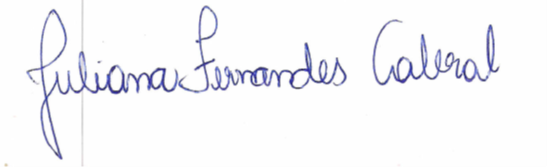 Juliana Fernandes Cabral